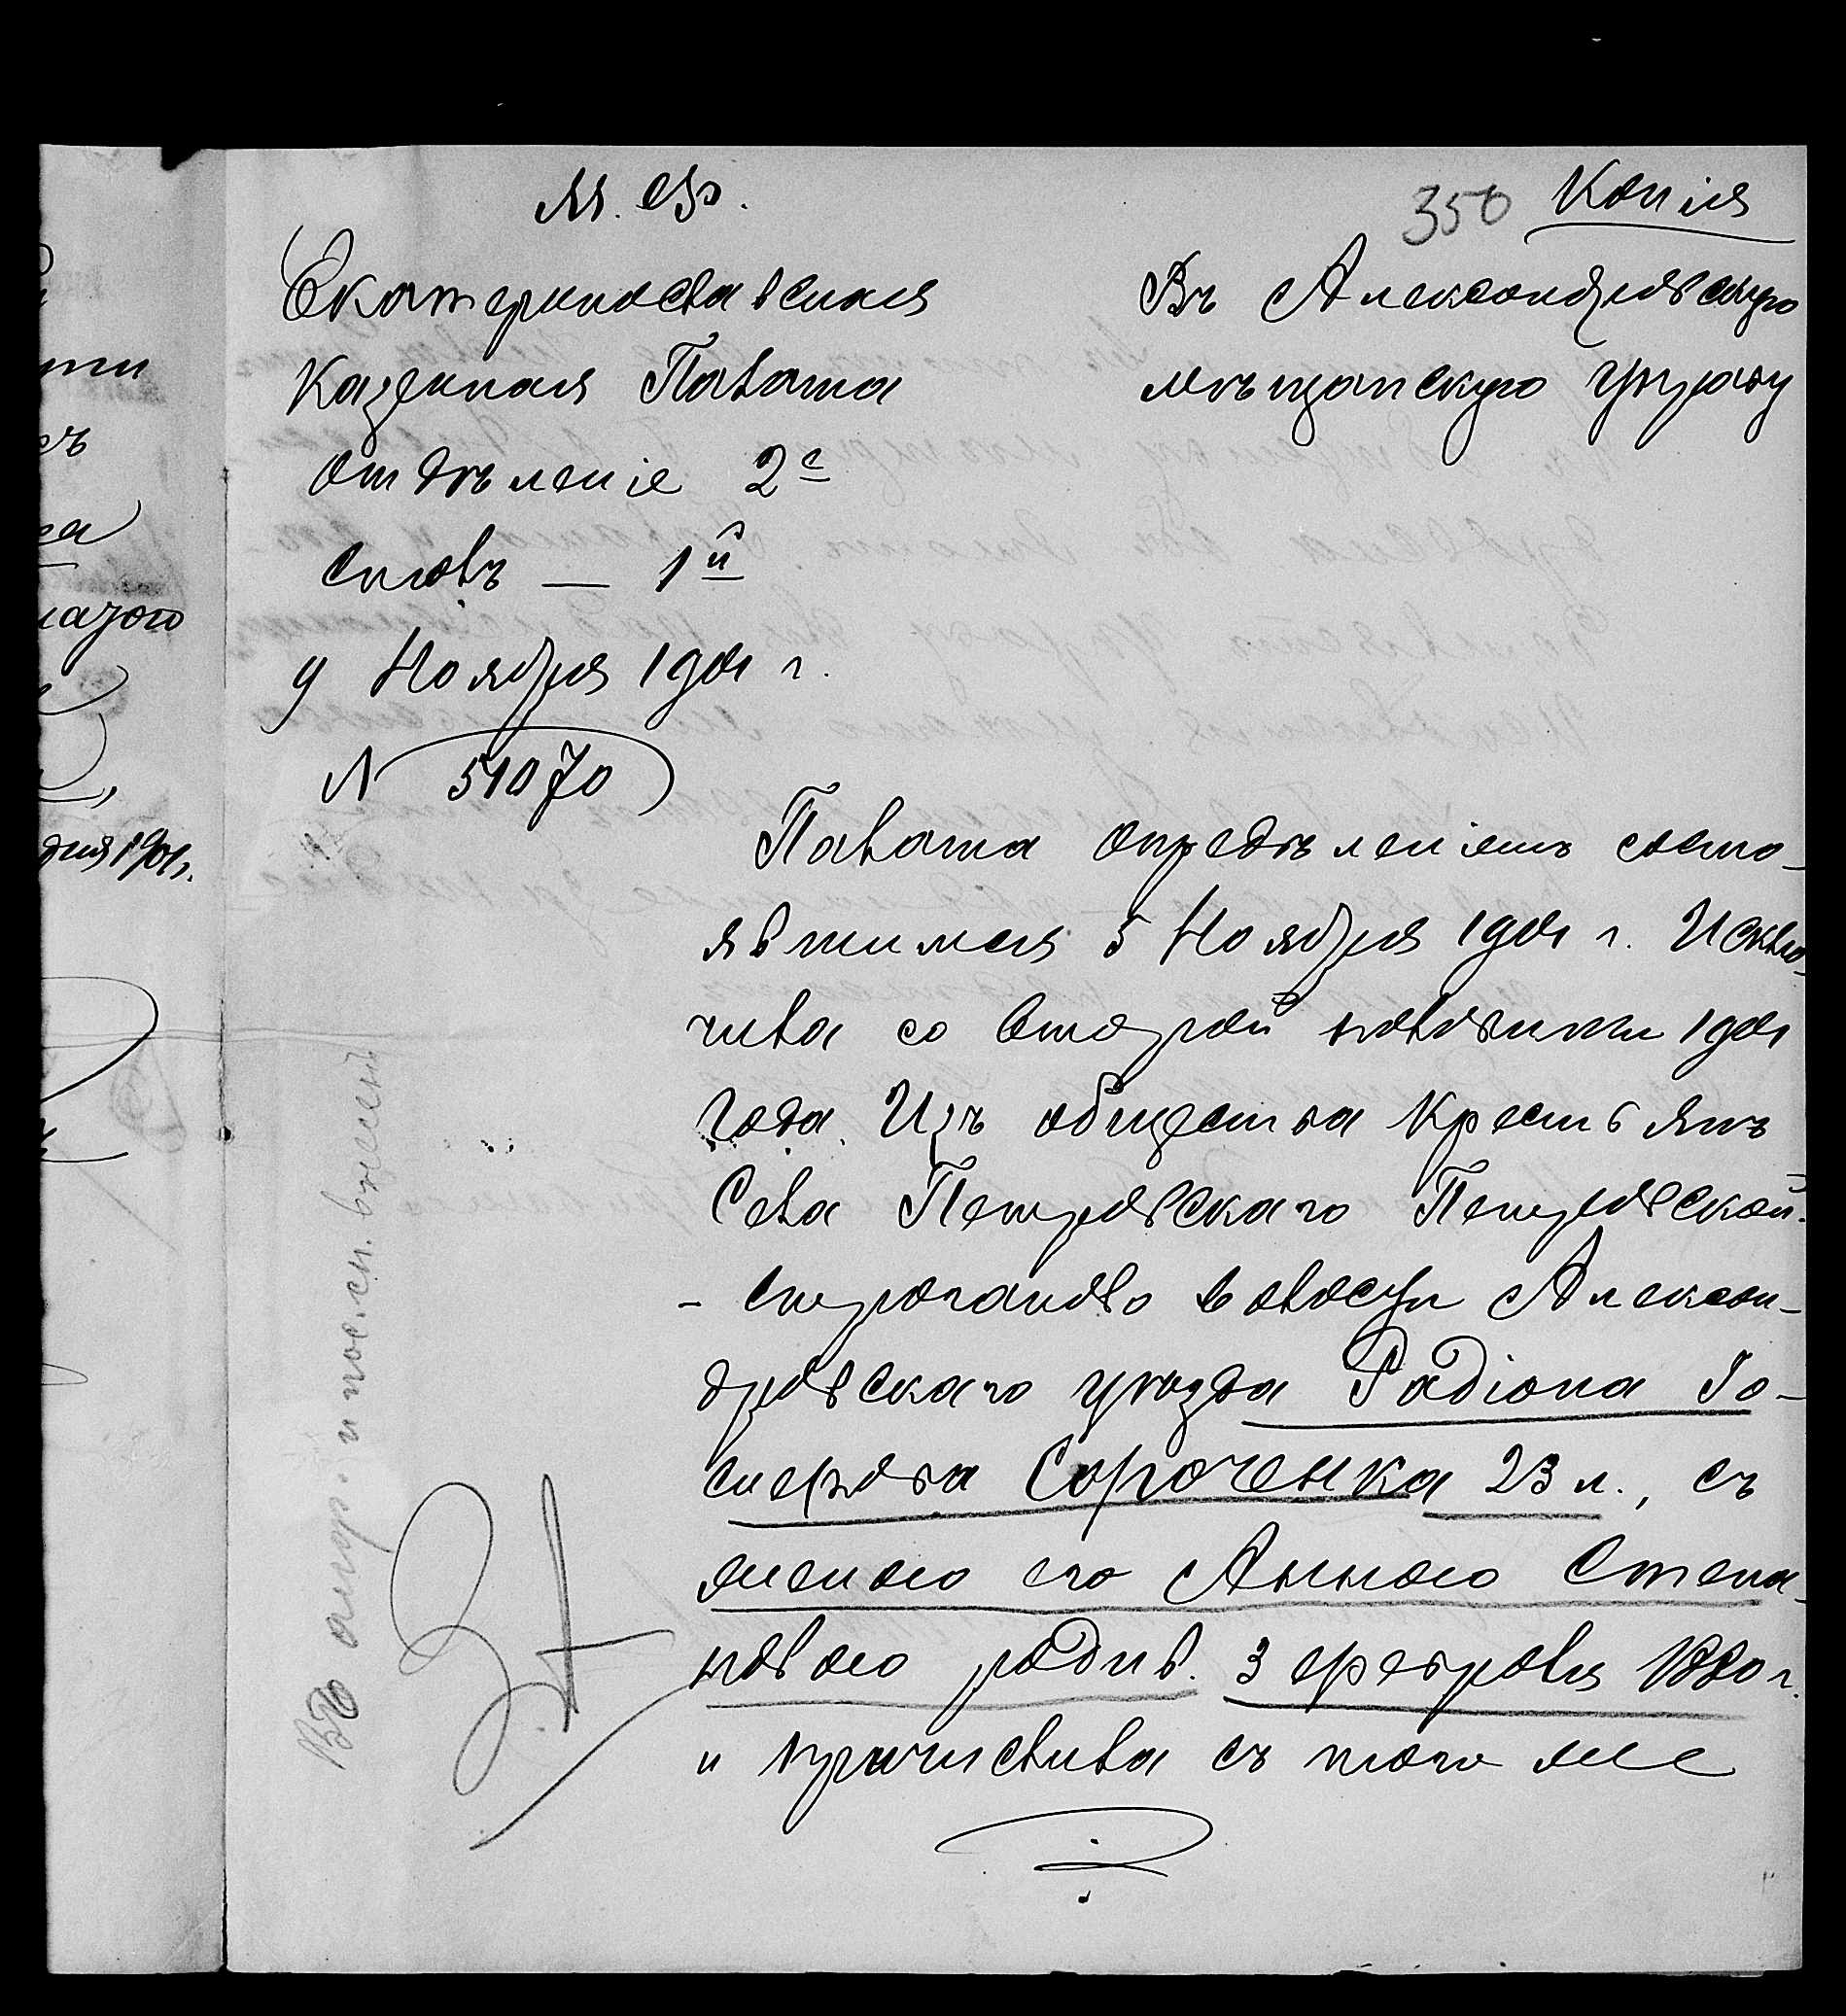 М. Ф.
350 Копія
Екатеринославская
Казенная Палата
Отдѣленіе 2е
Столъ — 1й
9 Ноября 1901 г.
N 51070
Въ Александровскую
мѣщанскую управу
Палата опредѣленіемъ состо-
явшимся 5 Ноября 1901 г. Исклю-
чила со второй половины 1901
года Изъ общества Крестьянъ
Села Петровскаго Петровской
волости Алексан-
дровскаго уѣзда Радіона Іо-
сифова Сороченка 23 л., съ
женою его Анною Степа-
новою родив. 3 февраля 1880 г.
и причислила съ того же
ти
ъ
га
дня 1901 г.